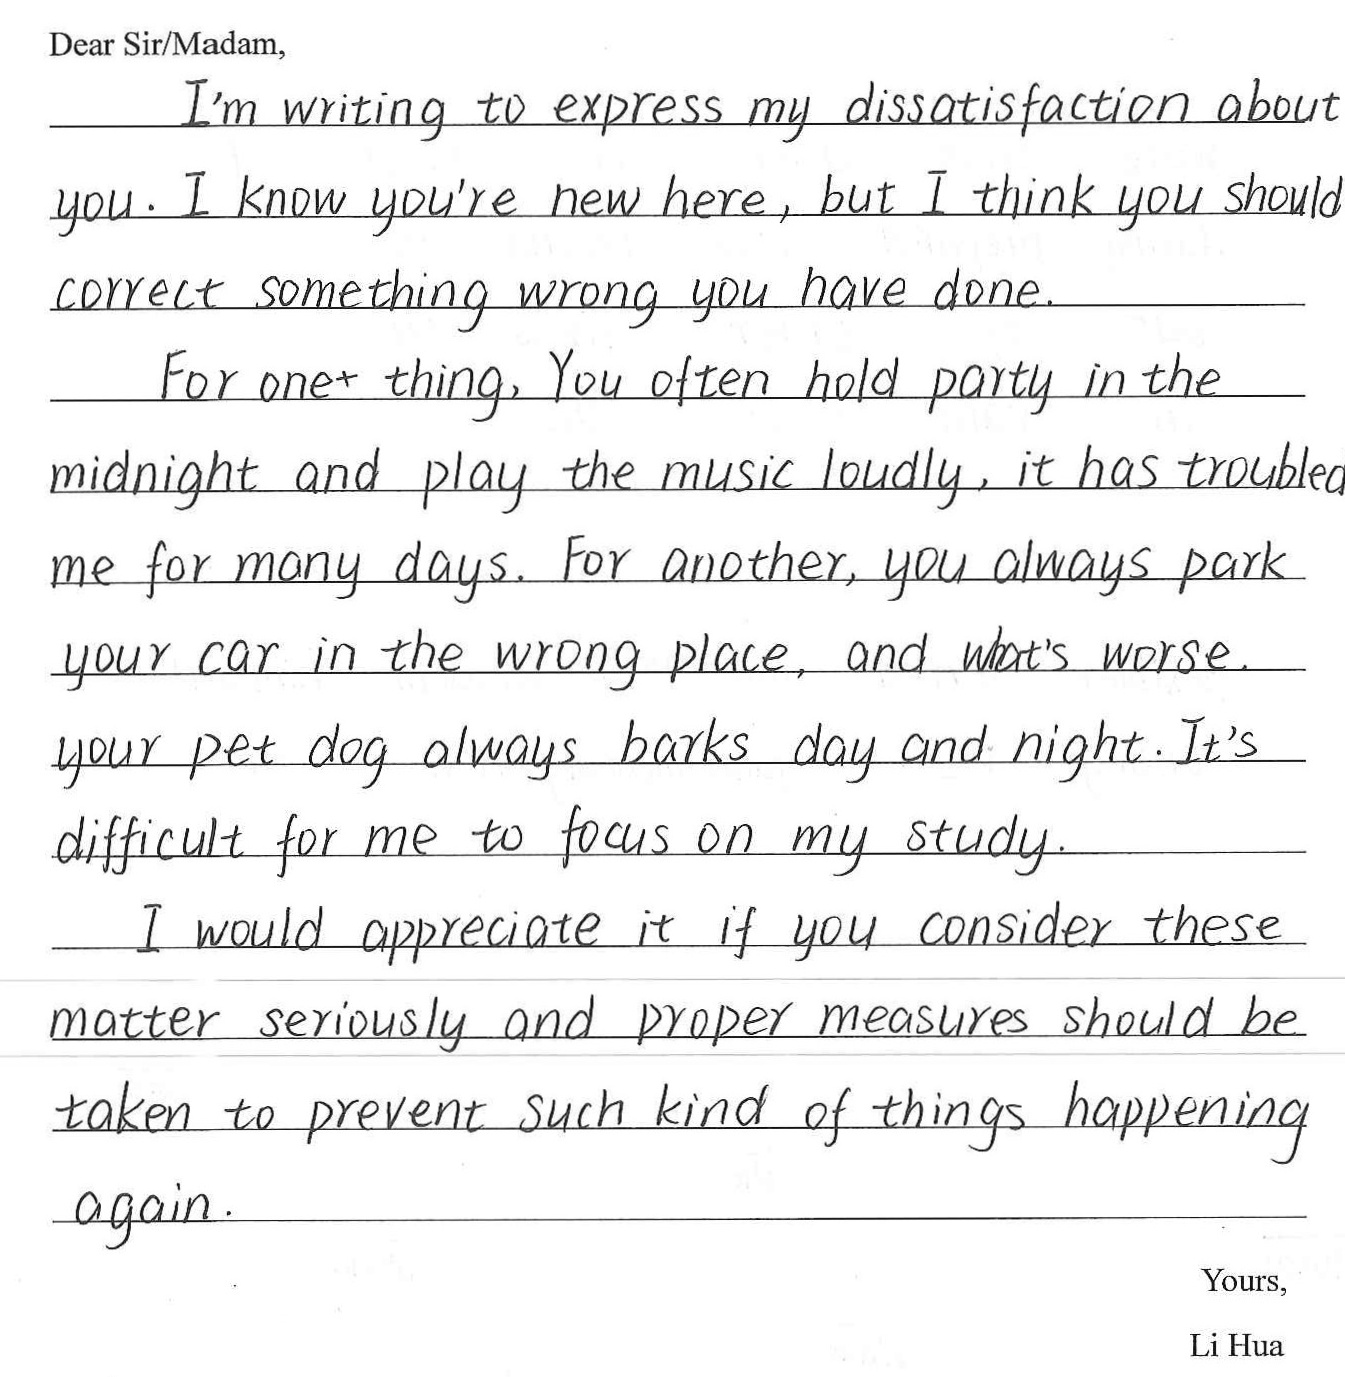 Dear Sir/Madam,
I'm writing to express my dissatisfaction about
you. I know you're new here, but I think you should
correct something wrong you have done.
For one thing, You often hold party in the
midnight and play the music loudly, it has troubled
me for many days. For another, you always park
your car in the wrong place, and what's worse.
your pet dog always barks day and night. It's
difficult for me to focus on my study.
I would appreciate it if you consider these
matter seriously and proper measures should be
taken to prevent such kind of things happening
again.
Yours,
Li Hua